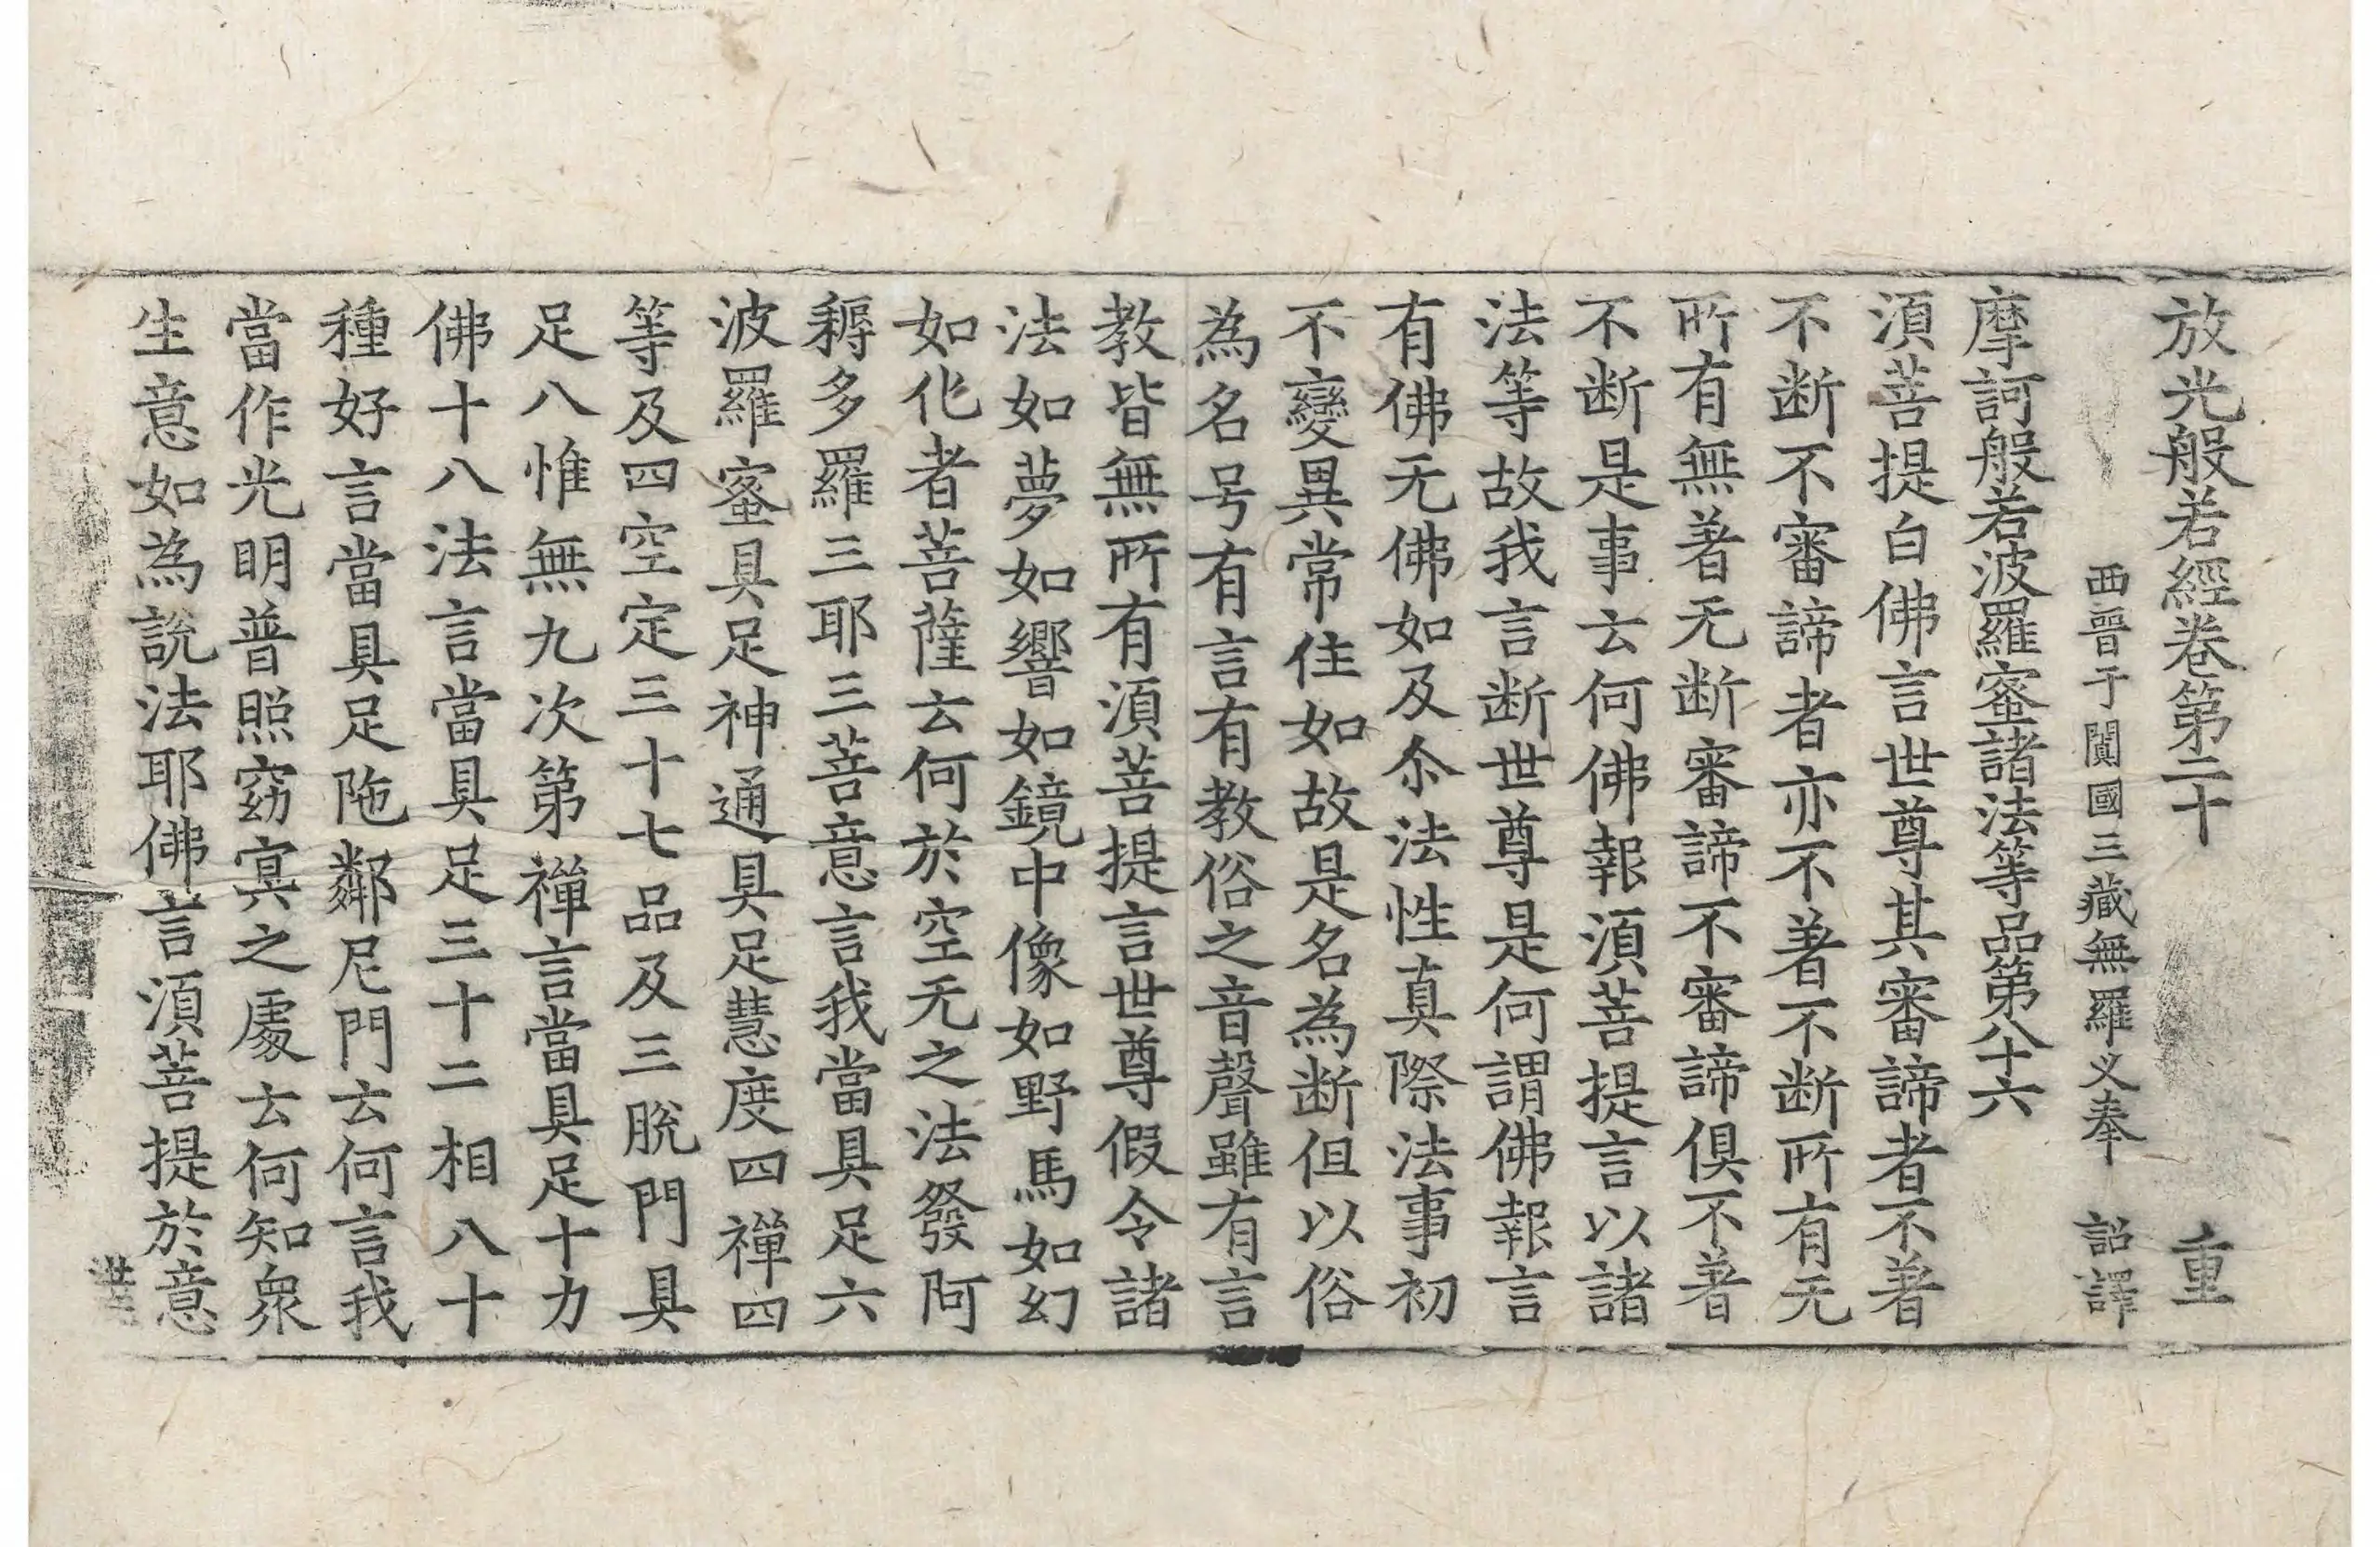 放光般若經卷第二十　重
西晉于闐國三藏無羅义奉　詔譯
摩訶般若波羅蜜諸法等品第八十六
須菩提白佛言世尊其審諦者不著
不断不審諦者亦不著不断所有无
所有無著无断審諦不審諦俱不著
不断是事云何佛報須菩提言以諸
法等故我言断世尊是何謂佛報言
有佛无佛如及尒法性真際法事初
不變異常住如故是名為断但以俗
為名号有言有教俗之音聲雖有言
教皆無所有須菩提言世尊假令諸
法如夢如響如鏡中像如野馬如幻
如化者菩薩云何於空无之法發阿
耨多羅三耶三菩意言我當具足六
波羅蜜具足神通具足慧度四禪四
等及四空定三十七品及三脫門具
足八惟無九次第禪言當具足十力
佛十八法言當具足三十二相八十
種好言當具足陁鄰尼門云何言我
當作光明普照窈冥之處云何知衆
生意如為說法耶佛言須菩提於意